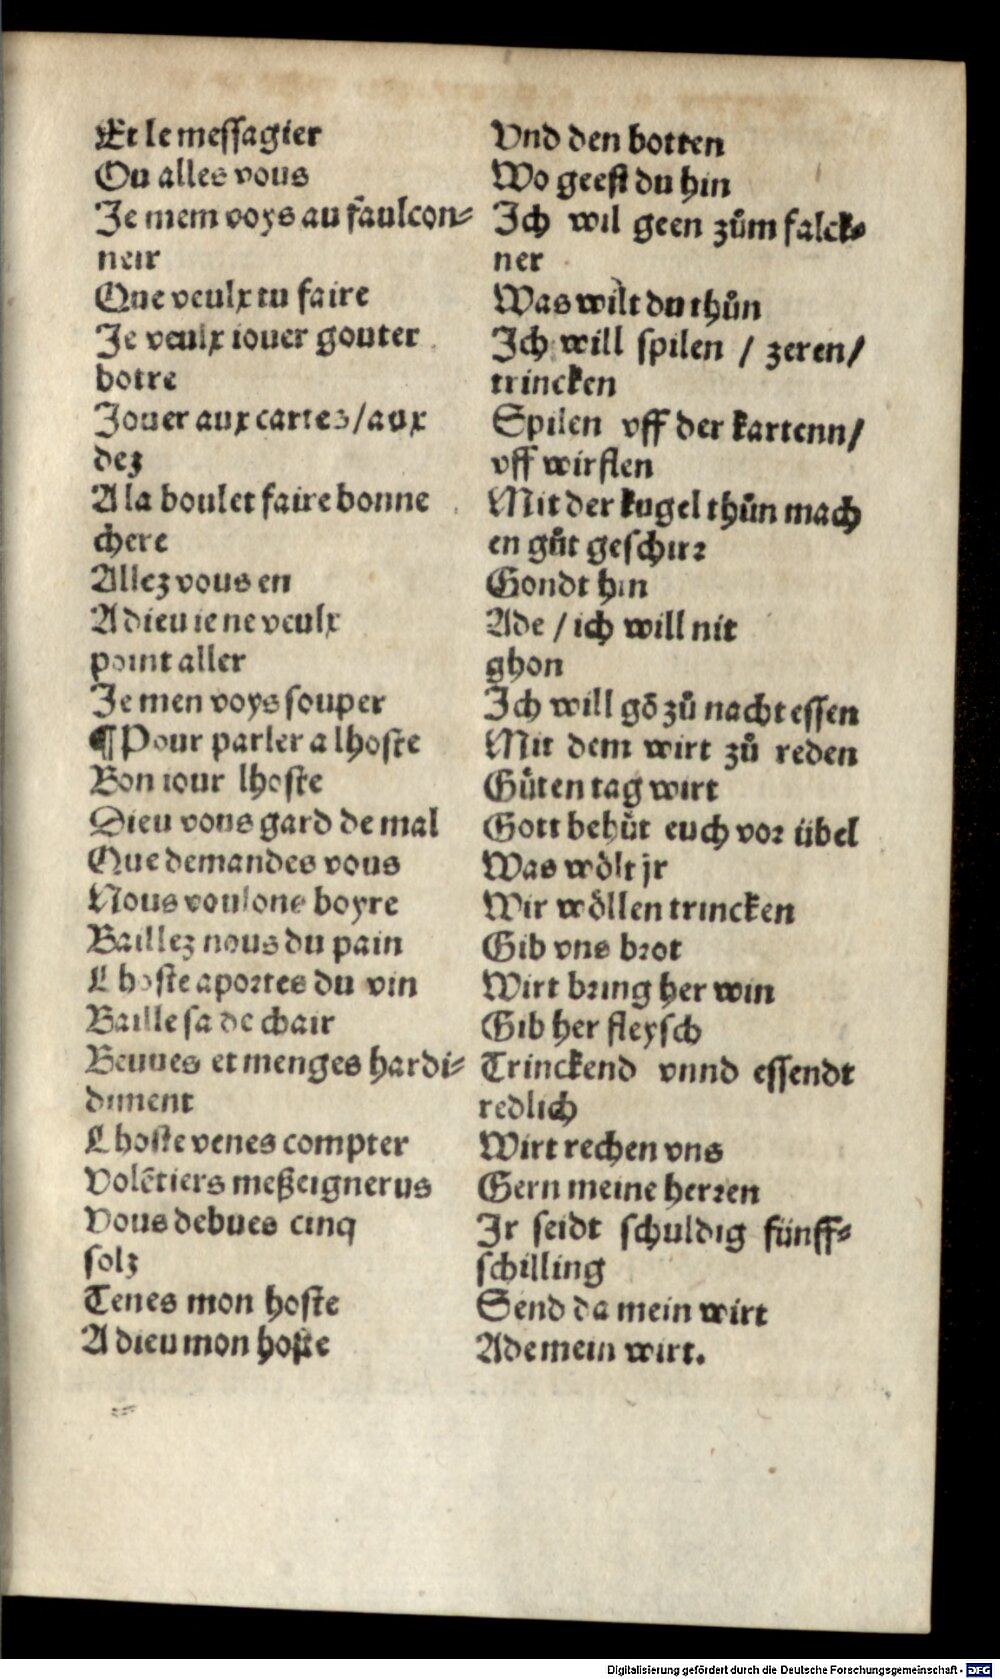 Et le messagier
Ou alles vous
Je mem voys au faulcon⸗
neir
Que veulx tu faire
Je veulx iouer gouter
botre
Jouer aux cartes/aux
dez
A la boulet faire bonne
chere
Allez vous en
A dieu ie ne veulx
point aller
Je men voys souper
¶Pour parler a lhoste
Bon iour lhoste
Dieu vous gard de mal
Que demandes vous
Nous voulons boyre
Baillez nous du pain
Lhoste aportes du vin
Baille sa de chair
Beuues et menges hardi⸗
dument
Lhoste venes compter
Volētiers meßeignerus
Vous debues cinq
solz
Tenes mon hoste
A dieu mon hoste
Vnd den botten
Wo geest du hin
Ich wil geen zům falck⸗
ner
Was wilt du thůn
Ich will spilen / zeren/
trincken
Spilen vff der kartenn/
vff wirflen
Mit der kugel thůn mach
en gůt geschirr
Gondt hin
Ade / ich will nit
ghon
Ich will gō zů nacht essen
Mit dem wirt zů reden
Gůten tag wirt
Gott behůt euch vor übel
Was wölt jr
Wir wöllen trincken
Gib vns brot
Wirt bring her win
Gib her fleysch
Trinckend vnnd essendt
redlich
Wirt rechen vns
Gern meine herren
Ir seidt schuldig fünff⸗
schilling
Send da mein wirt
Ade mein wirt.
Digitalisierung gefördert durch die Deutsche Forschungsgemeinschaft - DFG